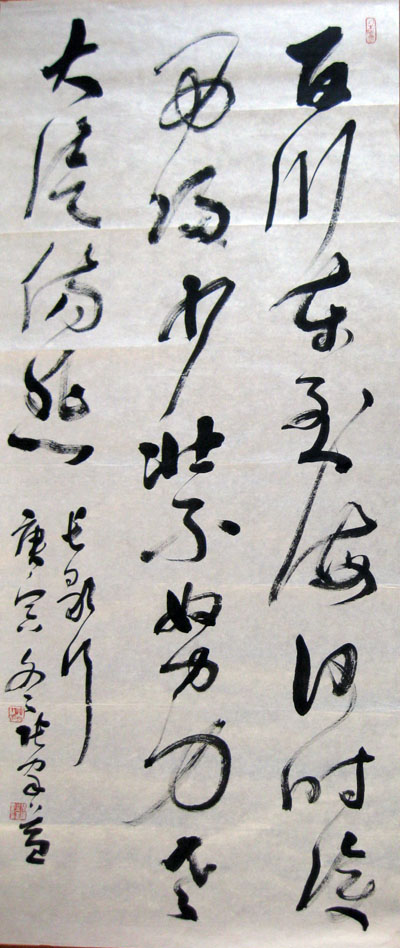 百川东至海何时復
西归少壮不努力老
大徒伤悲
长歌行
庚寅冬张家益